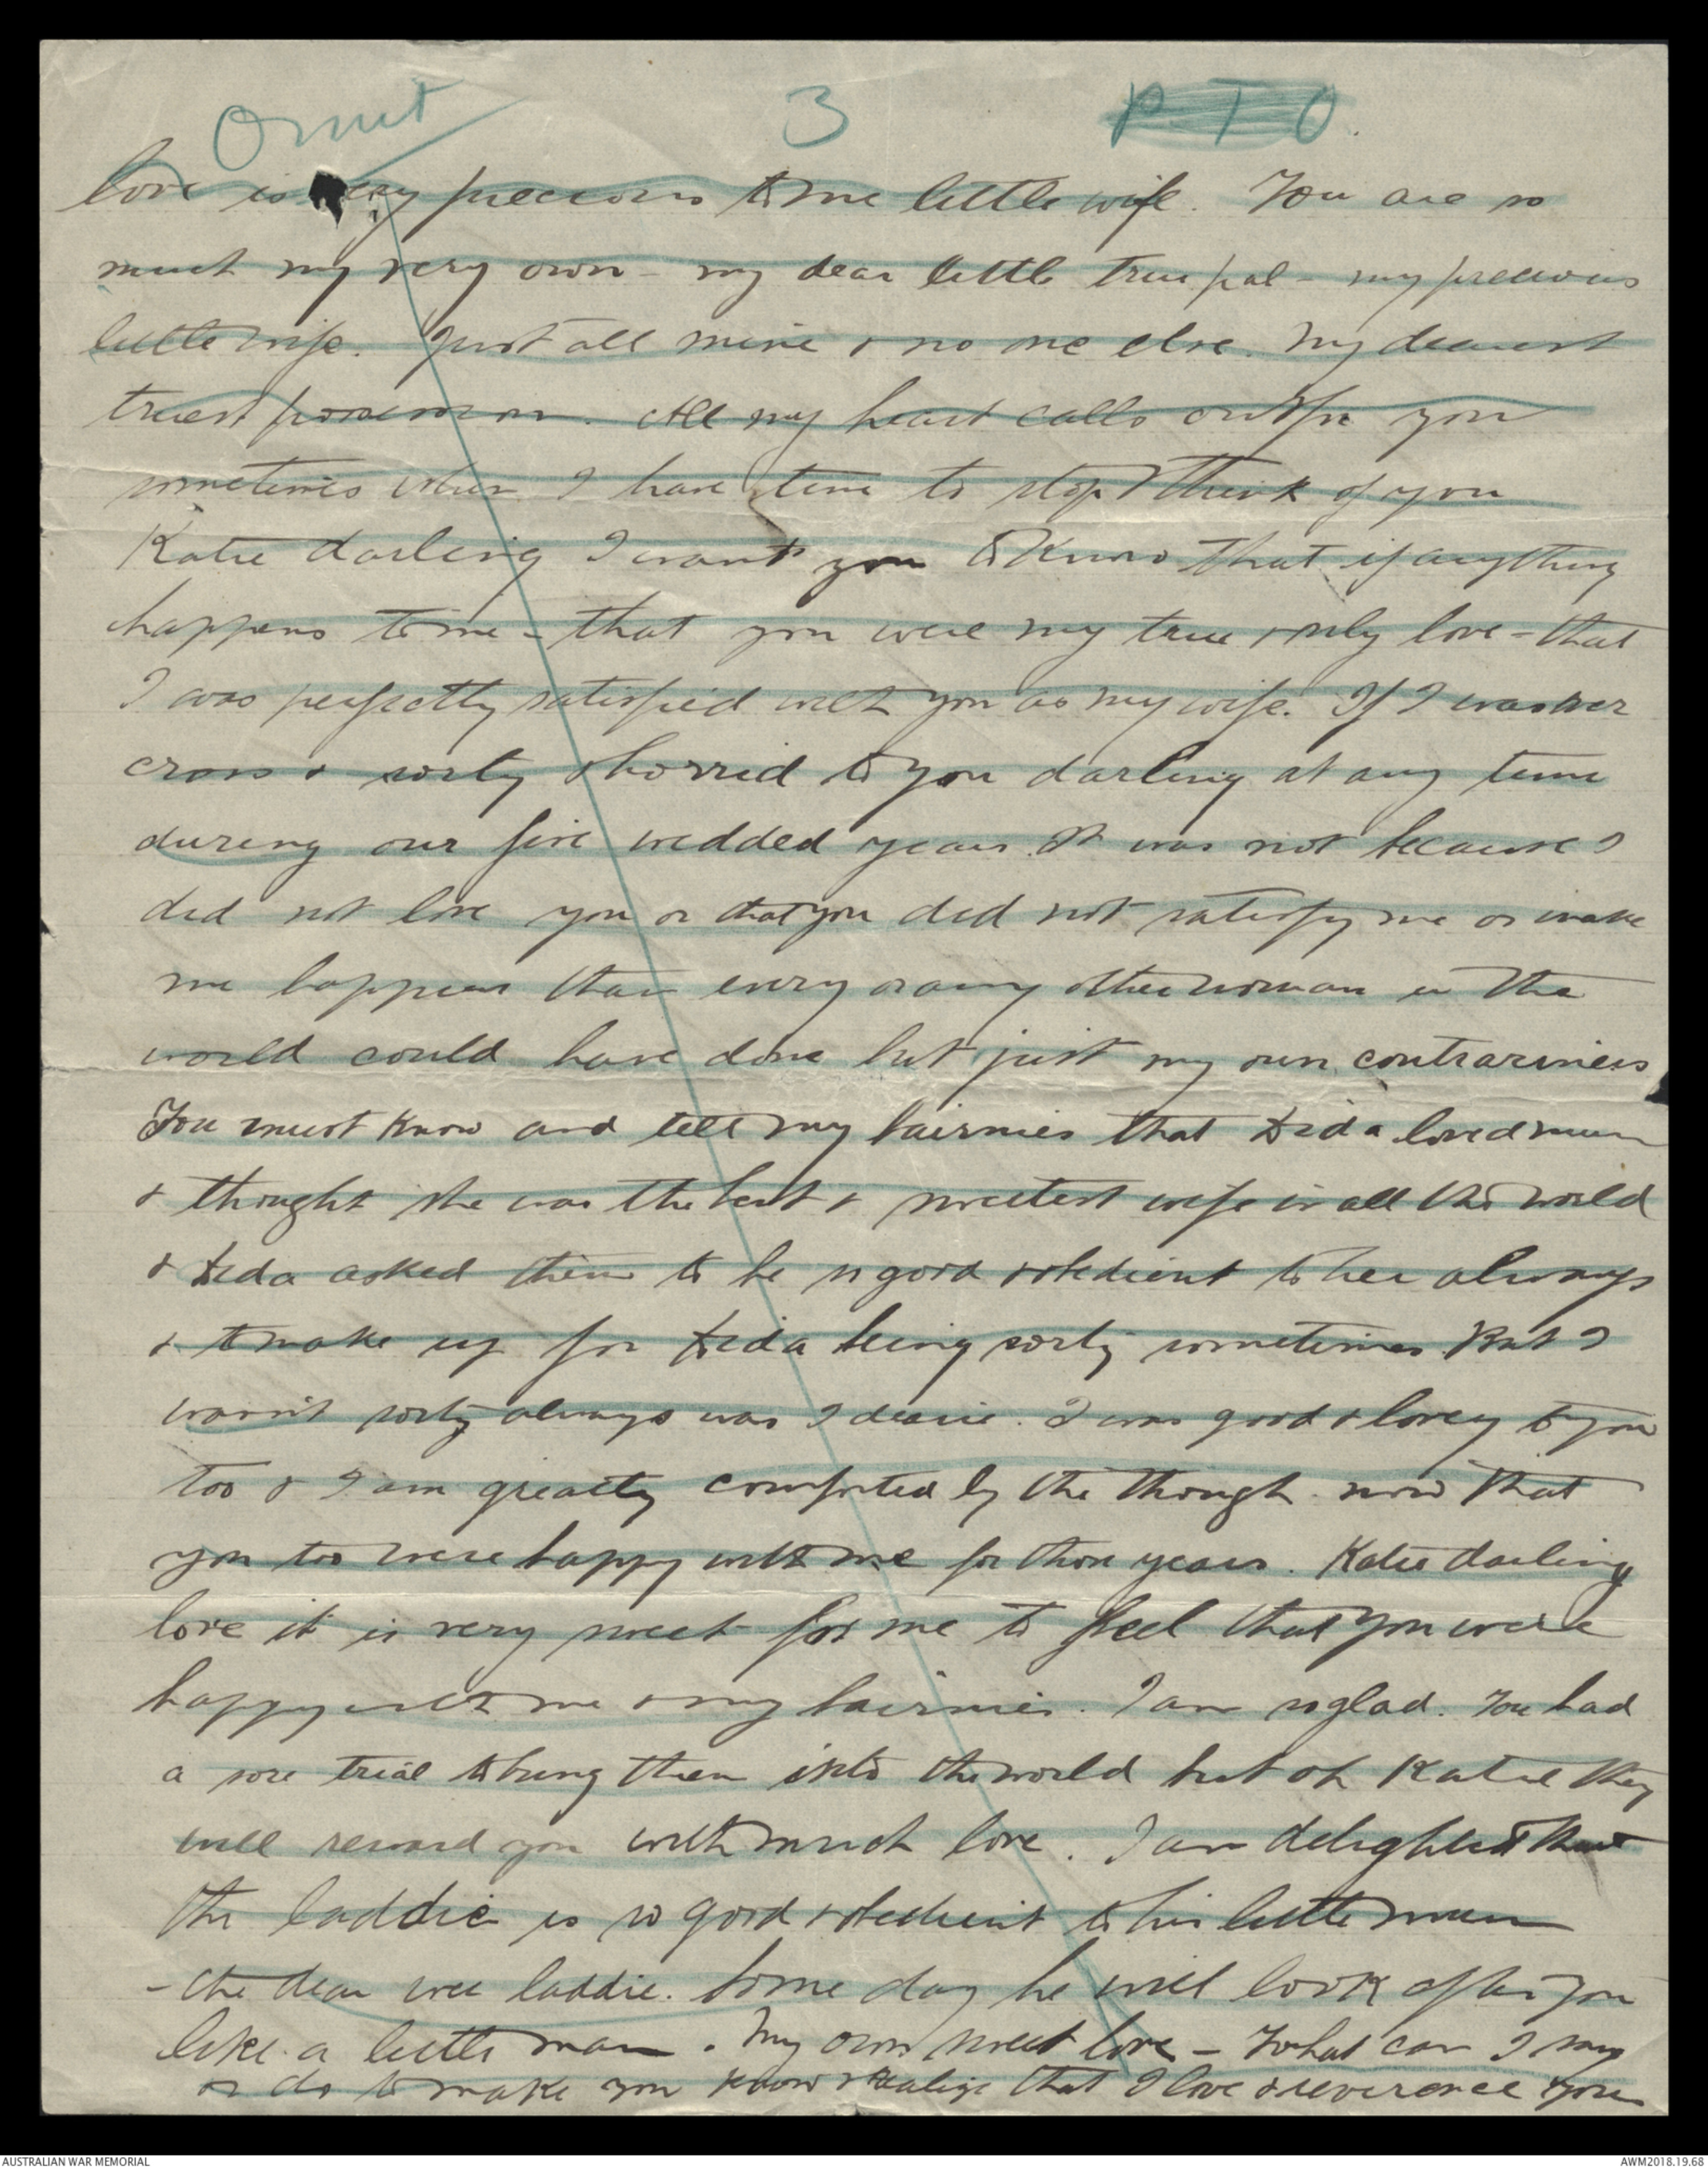 Omit 3 P T O.
love is very precious to me little wife. You are so
much my very own - my dear little true pal - my precious
little wife. Just all mine & no one else. My dearest
truest possession. All my heart calls out for you
sometimes when I have time to stop & think of you
Katie darling I want you to know that if anything
happens to me - that you were my true & only love - that
I was perfectly satisfied with you as my wife. If I was ever
cross & sorty & horrid to you darling at any time
during our five wedded years it was not because I
did not love you or that you did not satisfy me or make
me happier than every or any other woman in the
world could have done but just my own contrariness
You must know and tell my bairnies that Dida loved mum
& thought she was the best & sweetest wife in all the world
& Dida asked them to be so good & obedient to her always
& to make up for Dida being sorty sometimes. But I
wasn't sorty always was I dearie. I was good & lovey to you
too & I am greatly comforted by the though now that
you too were happy with me for those years. Katie darling
love it is very sweet for me to feel that you were
happy with me & my bairnies. I am so glad. You had
a sore trial to bring them into the world but oh Katie they
will reward you with much love. I am delighted that
the laddie is so good & obedient to his little mum
- the dear wee laddie. Some day he will look after you
like a little man. My own sweet love - What can I say
or do to make you know & realize that I love & reverence you
AUSTRALIAN WAR MEMORIAL AWM2018.19.68